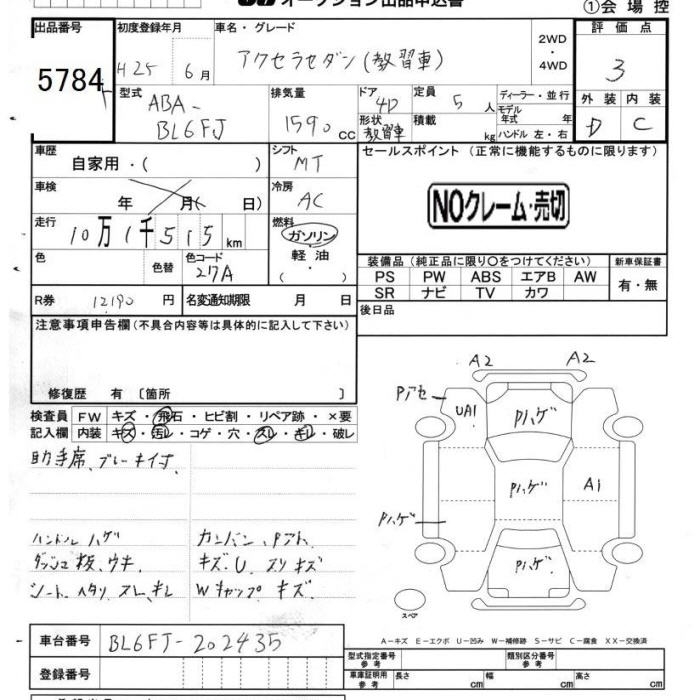 オークション出品申込書
①会場控
出品番号 5784
初度登録年月 H25 6月
車名・グレード アクセラセダン(教習車)
2WD・4WD
評価点 3
外装 D 内装 C
型式 ABA-BL6FJ
排気量 1590 cc
ドア 4D
形状 教習車
定員 5人
積載 kg
ディーラー・並行
モデル年式 年
ハンドル 左・右
車歴 自家用・( )
シフト MT
セールスポイント (正常に機能するものに限ります)
NOクレーム・売切
車検 年 月( 日)
冷房 AC
走行 10万1千515km
燃料 ガソリン・軽油・( )
色 色替
色コード 27A
装備品(純正品に限り○をつけてください)
新車保証書
PS PW ABS エアB AW
SR ナビ TV カワ
有・無
R券 12190 円
名変通知期限 月 日
後日品
注意事項申告欄(不具合内容等は具体的に記入して下さい)
修復歴 有〔箇所 〕
検査員 FW キズ・飛石・ヒビ割・リペア跡・×要
記入欄 内装 キズ・汚レ・コゲ・穴・スレ・キレ・破レ
助手席、ブレーキイ寸
ハンドル ハゲ
ダッシュ板、ウキ
シート、ヘタリ スレ、キレ
キズU、スリキズ
Wキャップ キズ
A2 A2
Pアセ
UA1 Pハゲ
Pハゲ A1
Pハゲ
Pハゲ
スペア
A-キズ E-エクボ U-凹み W-補修跡 S-サビ C-腐食 XX-交換済
車台番号 BL6FJ-202435
登録番号
型式指定番号 参考
類別区分番号 参考
車庫証明用 参考 長さ cm 幅 cm 高さ cm